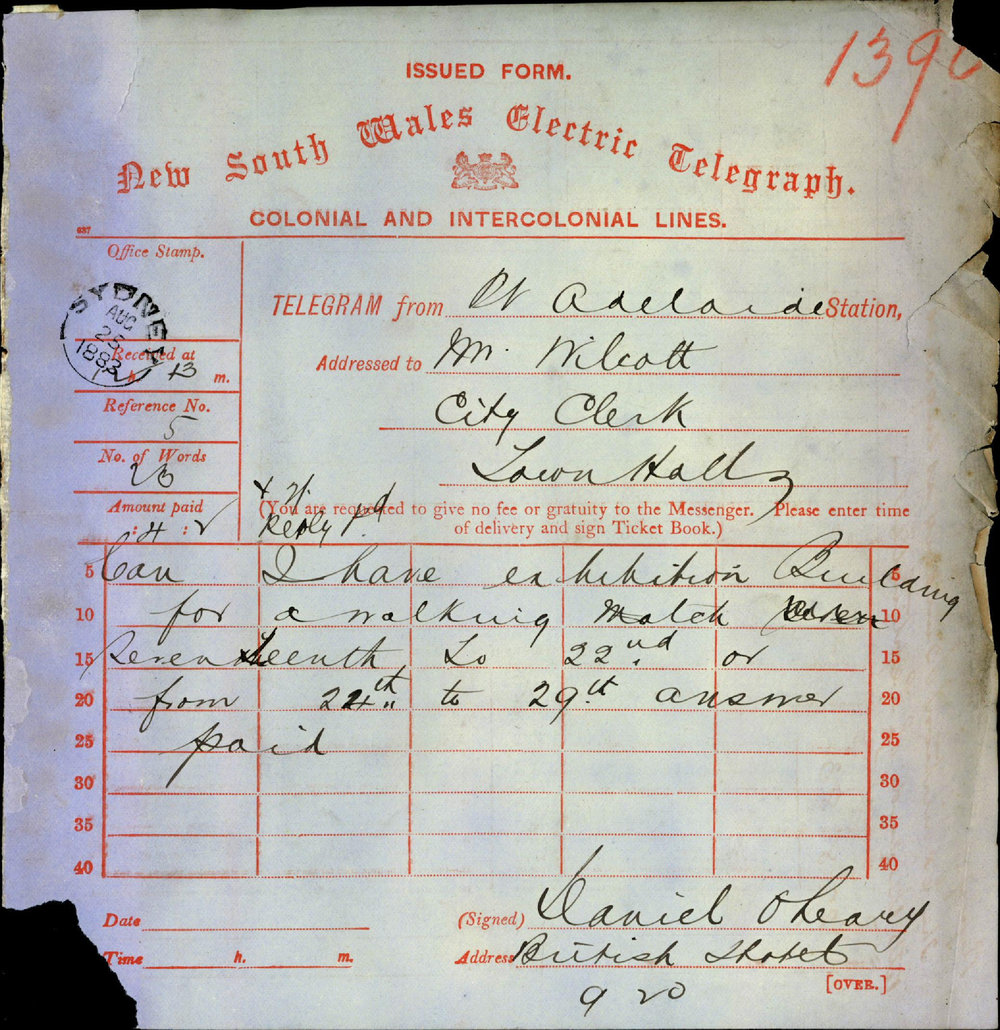 139
ISSUED FORM.
New South Wales Electric Telegraph.
COLONIAL AND INTERCOLONIAL LINES.
637
Office Stamp.
SYDNEY
AUG
25
1883
TELEGRAM from Pt Adelaide Station,
Received at
h. 13 m.
Addressed to Mr. Wilcott
City Clerk
Reference No.
5
Town Hall
No. of Words
23
Amount paid
: 4 : 2
Reply Pd
(You are requested to give no fee or gratuity to the Messenger. Please enter time
of delivery and sign Ticket Book.)
5 Can I have exhibition Building 5
10 for a walking Match 10
15 Seventeenth to 22nd or 15
20 from 24th to 29th answer 20
25 paid 25
30 30
35 35
40 40
Date
(Signed) Daniel O'Leary
Time h. m.
Address British Hotel
[OVER.]
9 20